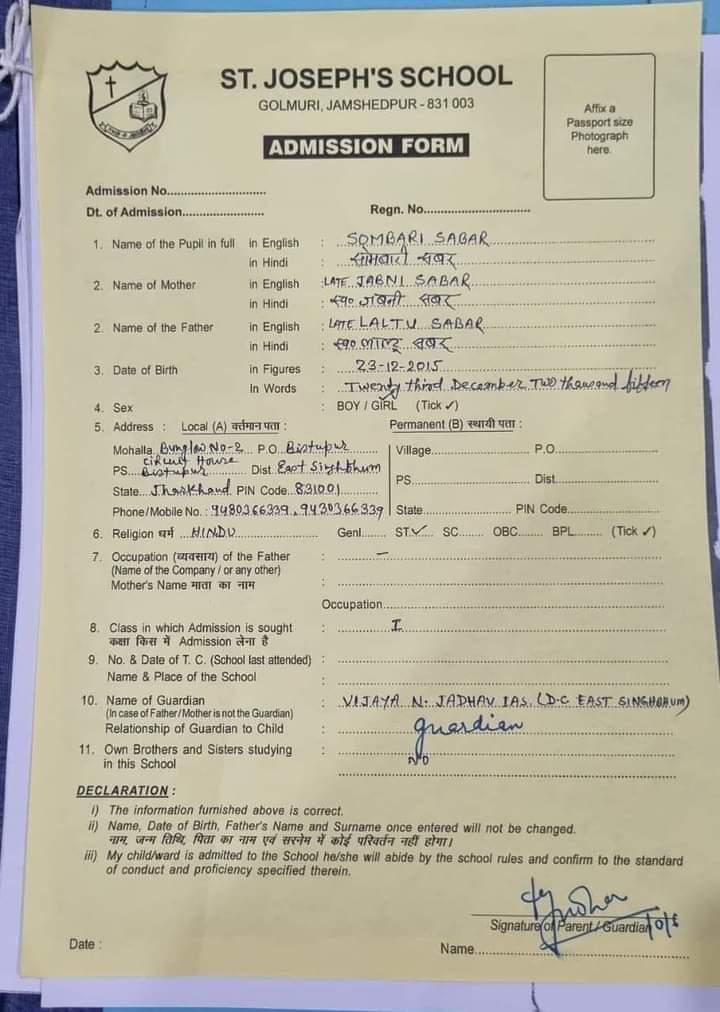 ST. JOSEPH'S SCHOOL
GOLMURI, JAMSHEDPUR - 831 003
ADMISSION FORM
Affix a
Passport size
Photograph
here.
Admission No.............................
Dt. of Admission........................ Regn. No...............................
1. Name of the Pupil in full in English : SOMBARI SABAR
in Hindi : सोमबारी सबर
2. Name of Mother in English : LATE JABNI SABAR
in Hindi : स्व० जबनी सबर
2. Name of the Father in English : LATE LALTU SABAR
in Hindi : स्व० लाल्टू सबर
3. Date of Birth in Figures : 23-12-2015
In Words : Twenty third December Two thousand fifteen
4. Sex : BOY / GIRL (Tick ✓)
5. Address : Local (A) वर्त्तमान पता : Permanent (B) स्थायी पता :
Mohalla Bunglow No-2 P.O. Bistupur Village P.O.
circuit House
PS. Bistupur Dist. East Singhbhum PS Dist.
State Jharkhand PIN Code 831001
Phone/Mobile No. : 9480366339, 9430366339 State PIN Code
6. Religion धर्म HINDU Genl. ST ✓ SC OBC BPL (Tick ✓)
7. Occupation (व्यवसाय) of the Father : –
(Name of the Company / or any other)
Mother's Name माता का नाम :
Occupation
8. Class in which Admission is sought : I
कक्षा किस में Admission लेना है
9. No. & Date of T. C. (School last attended) :
Name & Place of the School :
10. Name of Guardian : VIJAYA N. JADHAV IAS. (D.C EAST SINGHBHUM)
(In case of Father/Mother is not the Guardian)
Relationship of Guardian to Child : guardian
11. Own Brothers and Sisters studying : NO
in this School
DECLARATION :
i) The information furnished above is correct.
ii) Name, Date of Birth, Father's Name and Surname once entered will not be changed.
नाम, जन्म तिथि, पिता का नाम एवं सरनेम में कोई परिवर्तन नहीं होगा।
iii) My child/ward is admitted to the School he/she will abide by the school rules and confirm to the standard
of conduct and proficiency specified therein.
Signature of Parent / Guardian
Date : Name